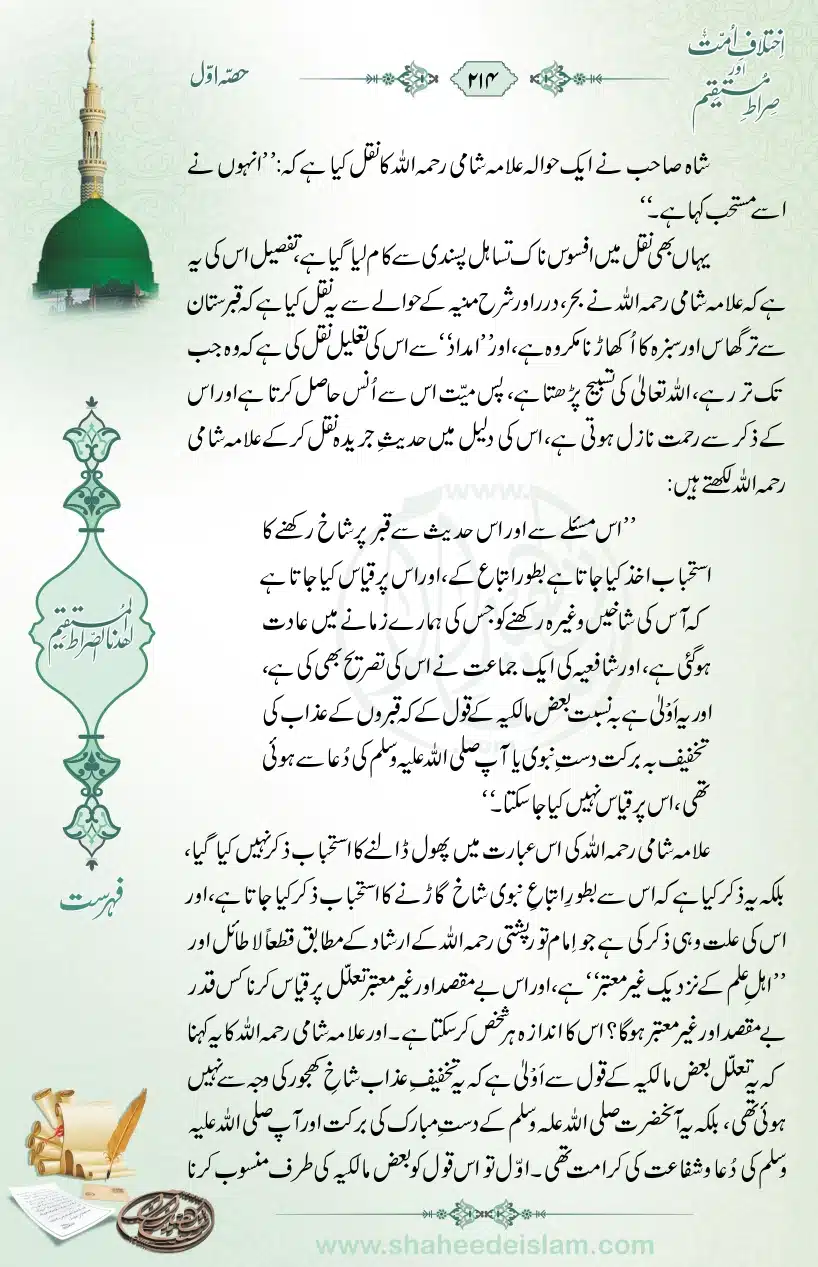 اِختلافِ اُمّت
اور
صراطِ مستقیم
۲۱۴
حصّہ اوّل
شاہ صاحب نے ایک حوالہ علامہ شامی رحمہ اللہ کا نقل کیا ہے کہ: ’’انہوں نے
اسے مستحب کہا ہے۔‘‘
یہاں بھی نقل میں افسوس ناک تساہل پسندی سے کام لیا گیا ہے، تفصیل اس کی یہ
ہے کہ علامہ شامی رحمہ اللہ نے بحر، درر اور شرح منیہ کے حوالے سے یہ نقل کیا ہے کہ قبرستان
سے تر گھاس اور سبزہ کا اُکھاڑنا مکروہ ہے، اور ’’امداد‘‘ سے اس کی تعلیل نقل کی ہے کہ وہ جب
تک تر رہے، اللہ تعالیٰ کی تسبیح پڑھتا ہے، پس میّت اس سے اُنس حاصل کرتا ہے اور اس
کے ذکر سے رحمت نازل ہوتی ہے، اس کی دلیل میں حدیثِ جریدہ نقل کرکے علامہ شامی
رحمہ اللہ لکھتے ہیں:
’’اس مسئلے سے اور اس حدیث سے قبر پر شاخ رکھنے کا
استحباب اخذ کیا جاتا ہے بطور اتباع کے، اور اس پر قیاس کیا جاتا ہے
کہ آس کی شاخیں وغیرہ رکھنے کو جس کی ہمارے زمانے میں عادت
ہوگئی ہے، اور شافعیہ کی ایک جماعت نے اس کی تصریح بھی کی ہے،
اور یہ اَوْلیٰ ہے بہ نسبت بعض مالکیہ کے قول کے کہ قبروں کے عذاب کی
تخفیف بہ برکت دستِ نبوی یا آپ صلی اللہ علیہ وسلم کی دُعا سے ہوئی
تھی، اس پر قیاس نہیں کیا جاسکتا۔‘‘
علامہ شامی رحمہ اللہ کی اس عبارت میں پھول ڈالنے کا استحباب ذکر نہیں کیا گیا،
بلکہ یہ ذکر کیا ہے کہ اس سے بطورِ اتباعِ نبوی شاخ گاڑنے کا استحباب ذکر کیا جاتا ہے، اور
اس کی علت وہی ذکر کی ہے جو اِمام تورپشتی رحمہ اللہ کے ارشاد کے مطابق قطعاً لاطائل اور
’’اہلِ علم کے نزدیک غیرمعتبر‘‘ ہے، اور اس بے مقصد اور غیرمعتبر تعلّل پر قیاس کرنا کس قدر
بے مقصد اور غیرمعتبر ہوگا؟ اس کا اندازہ ہر شخص کرسکتا ہے۔ اور علامہ شامی رحمہ اللہ کا یہ کہنا
کہ یہ تعلّل بعض مالکیہ کے قول سے اَوْلیٰ ہے کہ یہ تخفیفِ عذاب شاخِ کھجور کی وجہ سے نہیں
ہوئی تھی، بلکہ یہ آنحضرت صلی اللہ علہ وسلم کے دستِ مبارک کی برکت اور آپ صلی اللہ علیہ
وسلم کی دُعا وشفاعت کی کرامت تھی۔ اوّل تو اس قول کو بعض مالکیہ کی طرف منسوب کرنا
اهدنا الصراط المستقیم
فہرست
www.shaheedeislam.com